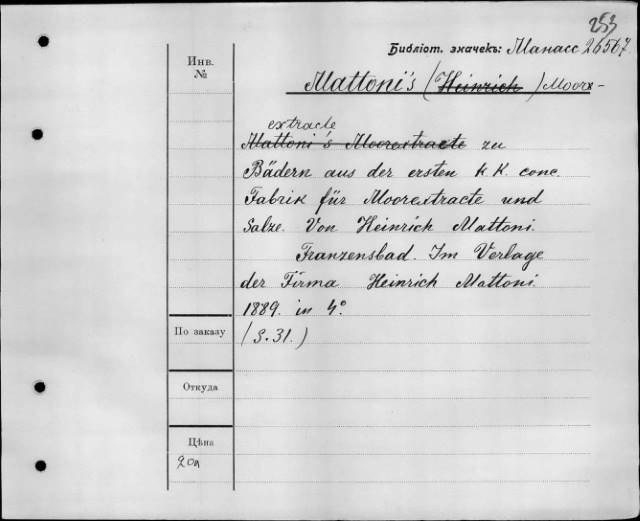 253
Библіот. значекъ: Манасс 26567
Инв.
№
Mattoni's (Heinrich) Moorx-
extracte
Mattoni's Moorextracte zu
Bädern aus der ersten k. k. conc.
Fabrik für Moorextracte und
Salze. Von Heinrich Mattoni.
Franzensbad. Im Verlage
der Firma Heinrich Mattoni.
1889. in 4°.
По заказу
(S. 31.)
Откуда
Цѣна